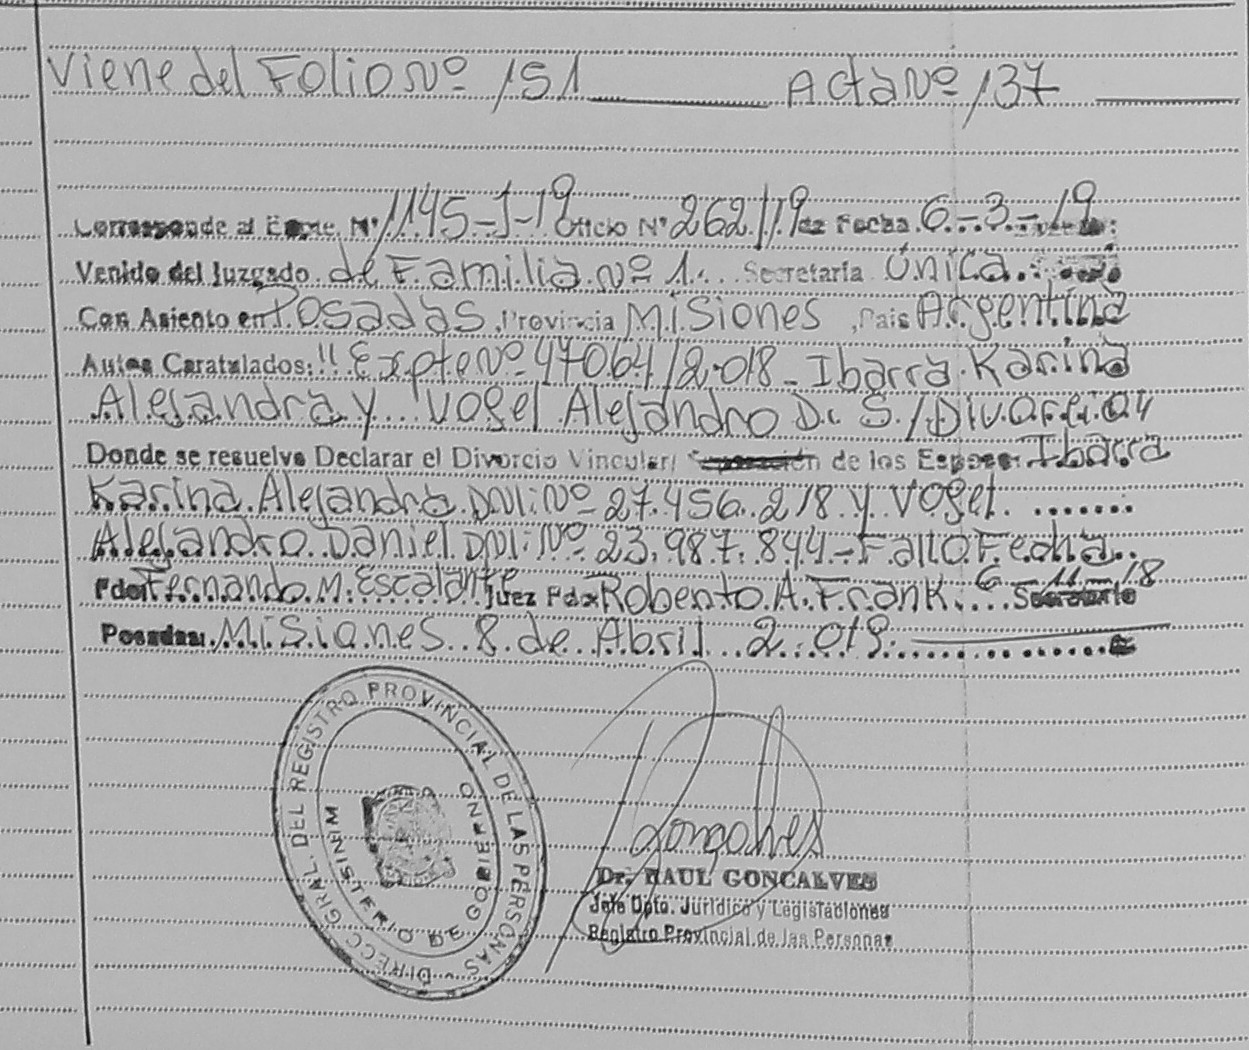 Viene del Folio Nº 151 Acta Nº 137
Corresponde al Expte. Nº 1145-J-19 Oficio Nº 262/19 de Fecha 6-3-19
Venido del Juzgado de Familia Nº 1. Secretaría Única.
Con Asiento en Posadas, Provincia Misiones, Pais Argentina
Autos Caratulados: "Expte Nº 47064/2.018 - Ibarra Karina
Alejandra y Vogel Alejandro D. S./Divorcio"
Donde se resuelve Declarar el Divorcio Vincular/ de los Esposos: Ibarra
Karina Alejandra DNI: Nº 27.456.218 y Vogel
Alejandro Daniel DNI: Nº 23.987.844 - Fallo Fecha
6-11-18
Fdo: Fernando M. Escalante Juez Fdo: Roberto A. Frank Secretario
Posadas: Misiones 8 de Abril 2.019.
DIRECC GRAL DEL REGISTRO PROVINCIAL DE LAS PERSONAS
MINISTERIO DE GOBIERNO
Goncalves
Dr. RAUL GONCALVES
Jefe Dpto. Jurídico y Legislaciones
Registro Provincial de las Personas